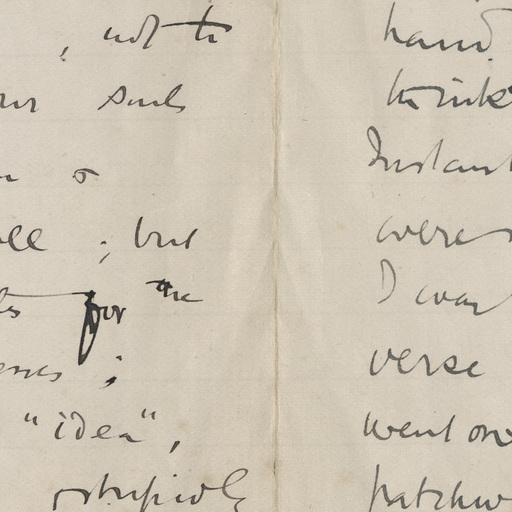 , not to
our souls
ll ; but
for the
;
"idea",
stupidly
hand
think
Instant
were
I was
verse
went on
patchw